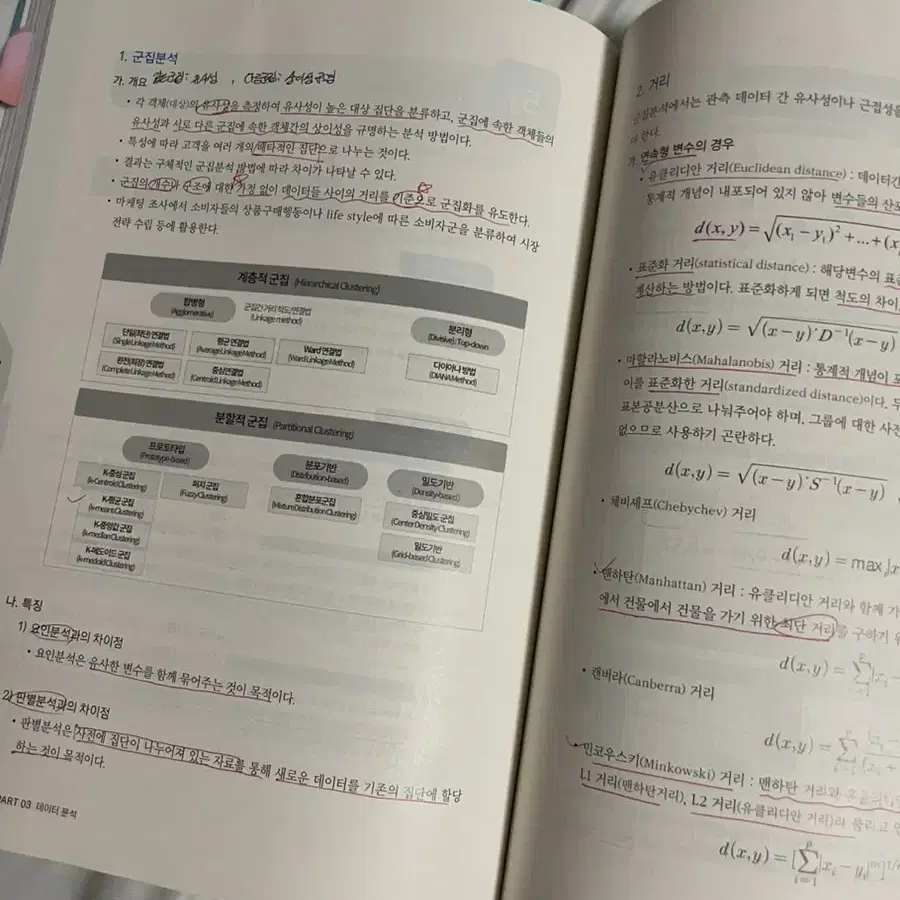 1. 군집분석
가. 개요
• 각 객체(대상)의 유사성을 측정하여 유사성이 높은 대상 집단을 분류하고, 군집에 속한 객체들의
유사성과 서로 다른 군집에 속한 객체간의 상이성을 규명하는 분석 방법이다.
• 특성에 따라 고객을 여러 개의 배타적인 집단으로 나누는 것이다.
• 결과는 구체적인 군집분석 방법에 따라 차이가 나타날 수 있다.
• 군집의 개수와 구조에 대한 가정 없이 데이터들 사이의 거리를 기준으로 군집화를 유도한다.
• 마케팅 조사에서 소비자들의 상품구매행동이나 life style에 따른 소비자군을 분류하여 시장
전략 수립 등에 활용한다.
계층적 군집 (Hierarchical Clustering)
합병형
(Agglomerative)
군집간 거리 척도/연결법
(Linkage method)
분리형
(Divisive): Top-down
단일(최단) 연결법
(Single Linkage Method)
평균 연결법
(Average Linkage Method)
Ward 연결법
(Ward Linkage Method)
다이아나 방법
(DIANA Method)
완전(최장) 연결법
(Complete Linkage Method)
중심연결법
(Centroid Linkage Method)
분할적 군집 (Partitional Clustering)
프로토타입
(Prototype-based)
분포기반
(Distribution-based)
밀도기반
(Density-based)
K-중심 군집
(k-Centroid Clustering)
퍼지 군집
(Fuzzy Clustering)
혼합분포군집
(Mixture Distribution Clustering)
중심밀도 군집
(Center Density Clustering)
K-평균 군집
(k-means Clustering)
K-중앙값 군집
(k-median Clustering)
밀도기반
(Grid-based Clustering)
K-메도이드 군집
(k-medoid Clustering)
나. 특징
1) 요인분석과의 차이점
• 요인분석은 유사한 변수를 함께 묶어주는 것이 목적이다.
2) 판별분석과의 차이점
• 판별분석은 사전에 집단이 나누어져 있는 자료를 통해 새로운 데이터를 기존의 집단에 할당
하는 것이 목적이다.
PART 03 데이터 분석
2. 거리
군집분석에서는 관측 데이터 간 유사성이나 근접성을
가. 연속형 변수의 경우
• 유클리디안 거리(Euclidean distance) : 데이터간
통계적 개념이 내포되어 있지 않아 변수들의 산포
d(x, y) = √(x₁ − y₁)² + ... + (x
• 표준화 거리(statistical distance) : 해당변수의 표준
계산하는 방법이다. 표준화하게 되면 척도의 차이
d(x,y) = √(x−y)´D⁻¹(x−y)
• 마할라노비스(Mahalanobis) 거리 : 통계적 개념이 포
이를 표준화한 거리(standardized distance)이다. 두
표본공분산으로 나눠주어야 하며, 그룹에 대한 사전
없으므로 사용하기 곤란하다.
d(x,y) = √(x−y)´S⁻¹(x−y)
• 체비셰프(Chebychev) 거리
d(x,y) = maxᵢ|x
• 맨하탄(Manhattan) 거리 : 유클리디안 거리와 함께 가
에서 건물에서 건물을 가기 위한 최단 거리를 구하기 위
d(x,y) = Σ|xᵢ −
• 캔버라(Canberra) 거리
d(x,y) = Σ
• 민코우스키(Minkowski) 거리 : 맨하탄 거리와 유클리디
L1 거리(맨하탄거리), L2 거리(유클리디안 거리)라 불리고
d(x,y) = [Σ|xᵢ − yᵢ|ᵐ]¹/